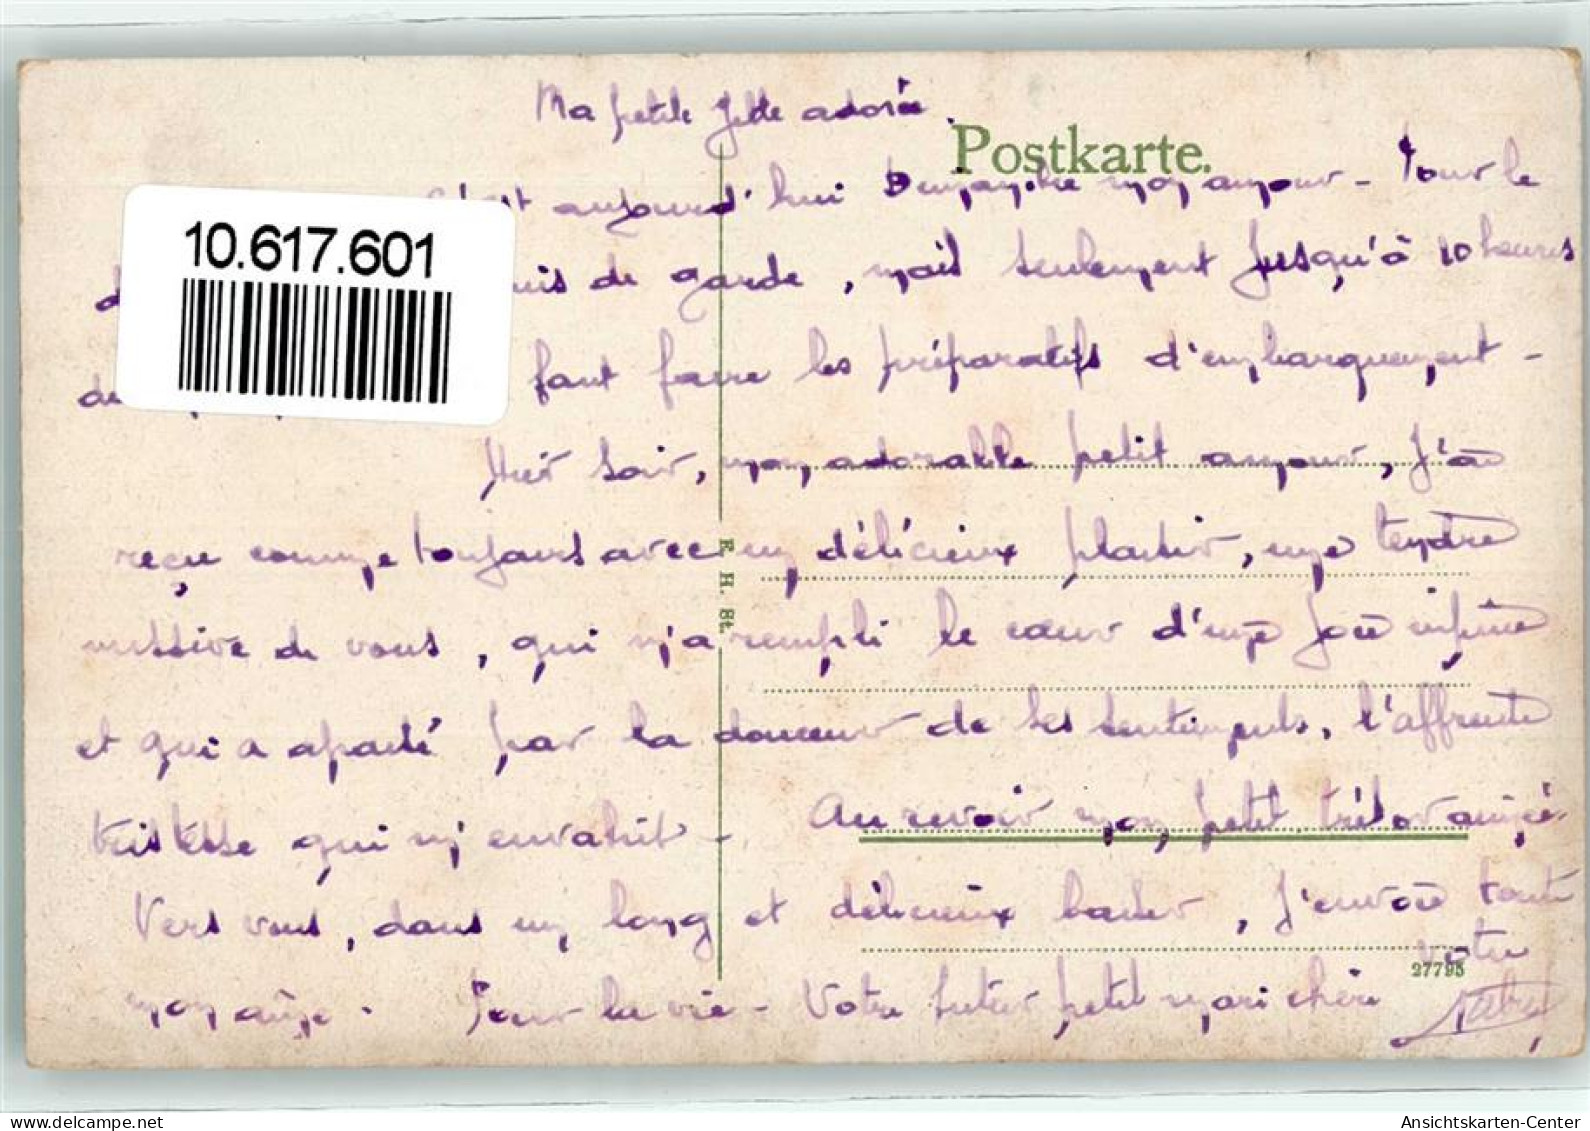 Ma petite adorée
Postkarte.
c'est aujourd'hui Dimanche mon amour - Pour le
10.617.601
suis de garde, mais seulement jusqu'à 10 heures
faut faire les préparatifs d'embarquement -
Hier soir, mon adorable petit amour, j'ai
reçu comme toujours avec un délicieux plaisir, une tendre
missive de vous, qui m'a rempli le cœur d'une joie infinie
et qui a apaisé par la douceur de ses sentiments, l'affreuse
tristesse qui m'envahit - Au revoir mon petit trésor aimé.
Vers vous, dans un long et délicieux baiser, j'envoie toute
mon âme. Pour la vie - Votre futur petit mari chéri
votre
E. H. St.
27795
delcampe.net
Ansichtskarten-Center